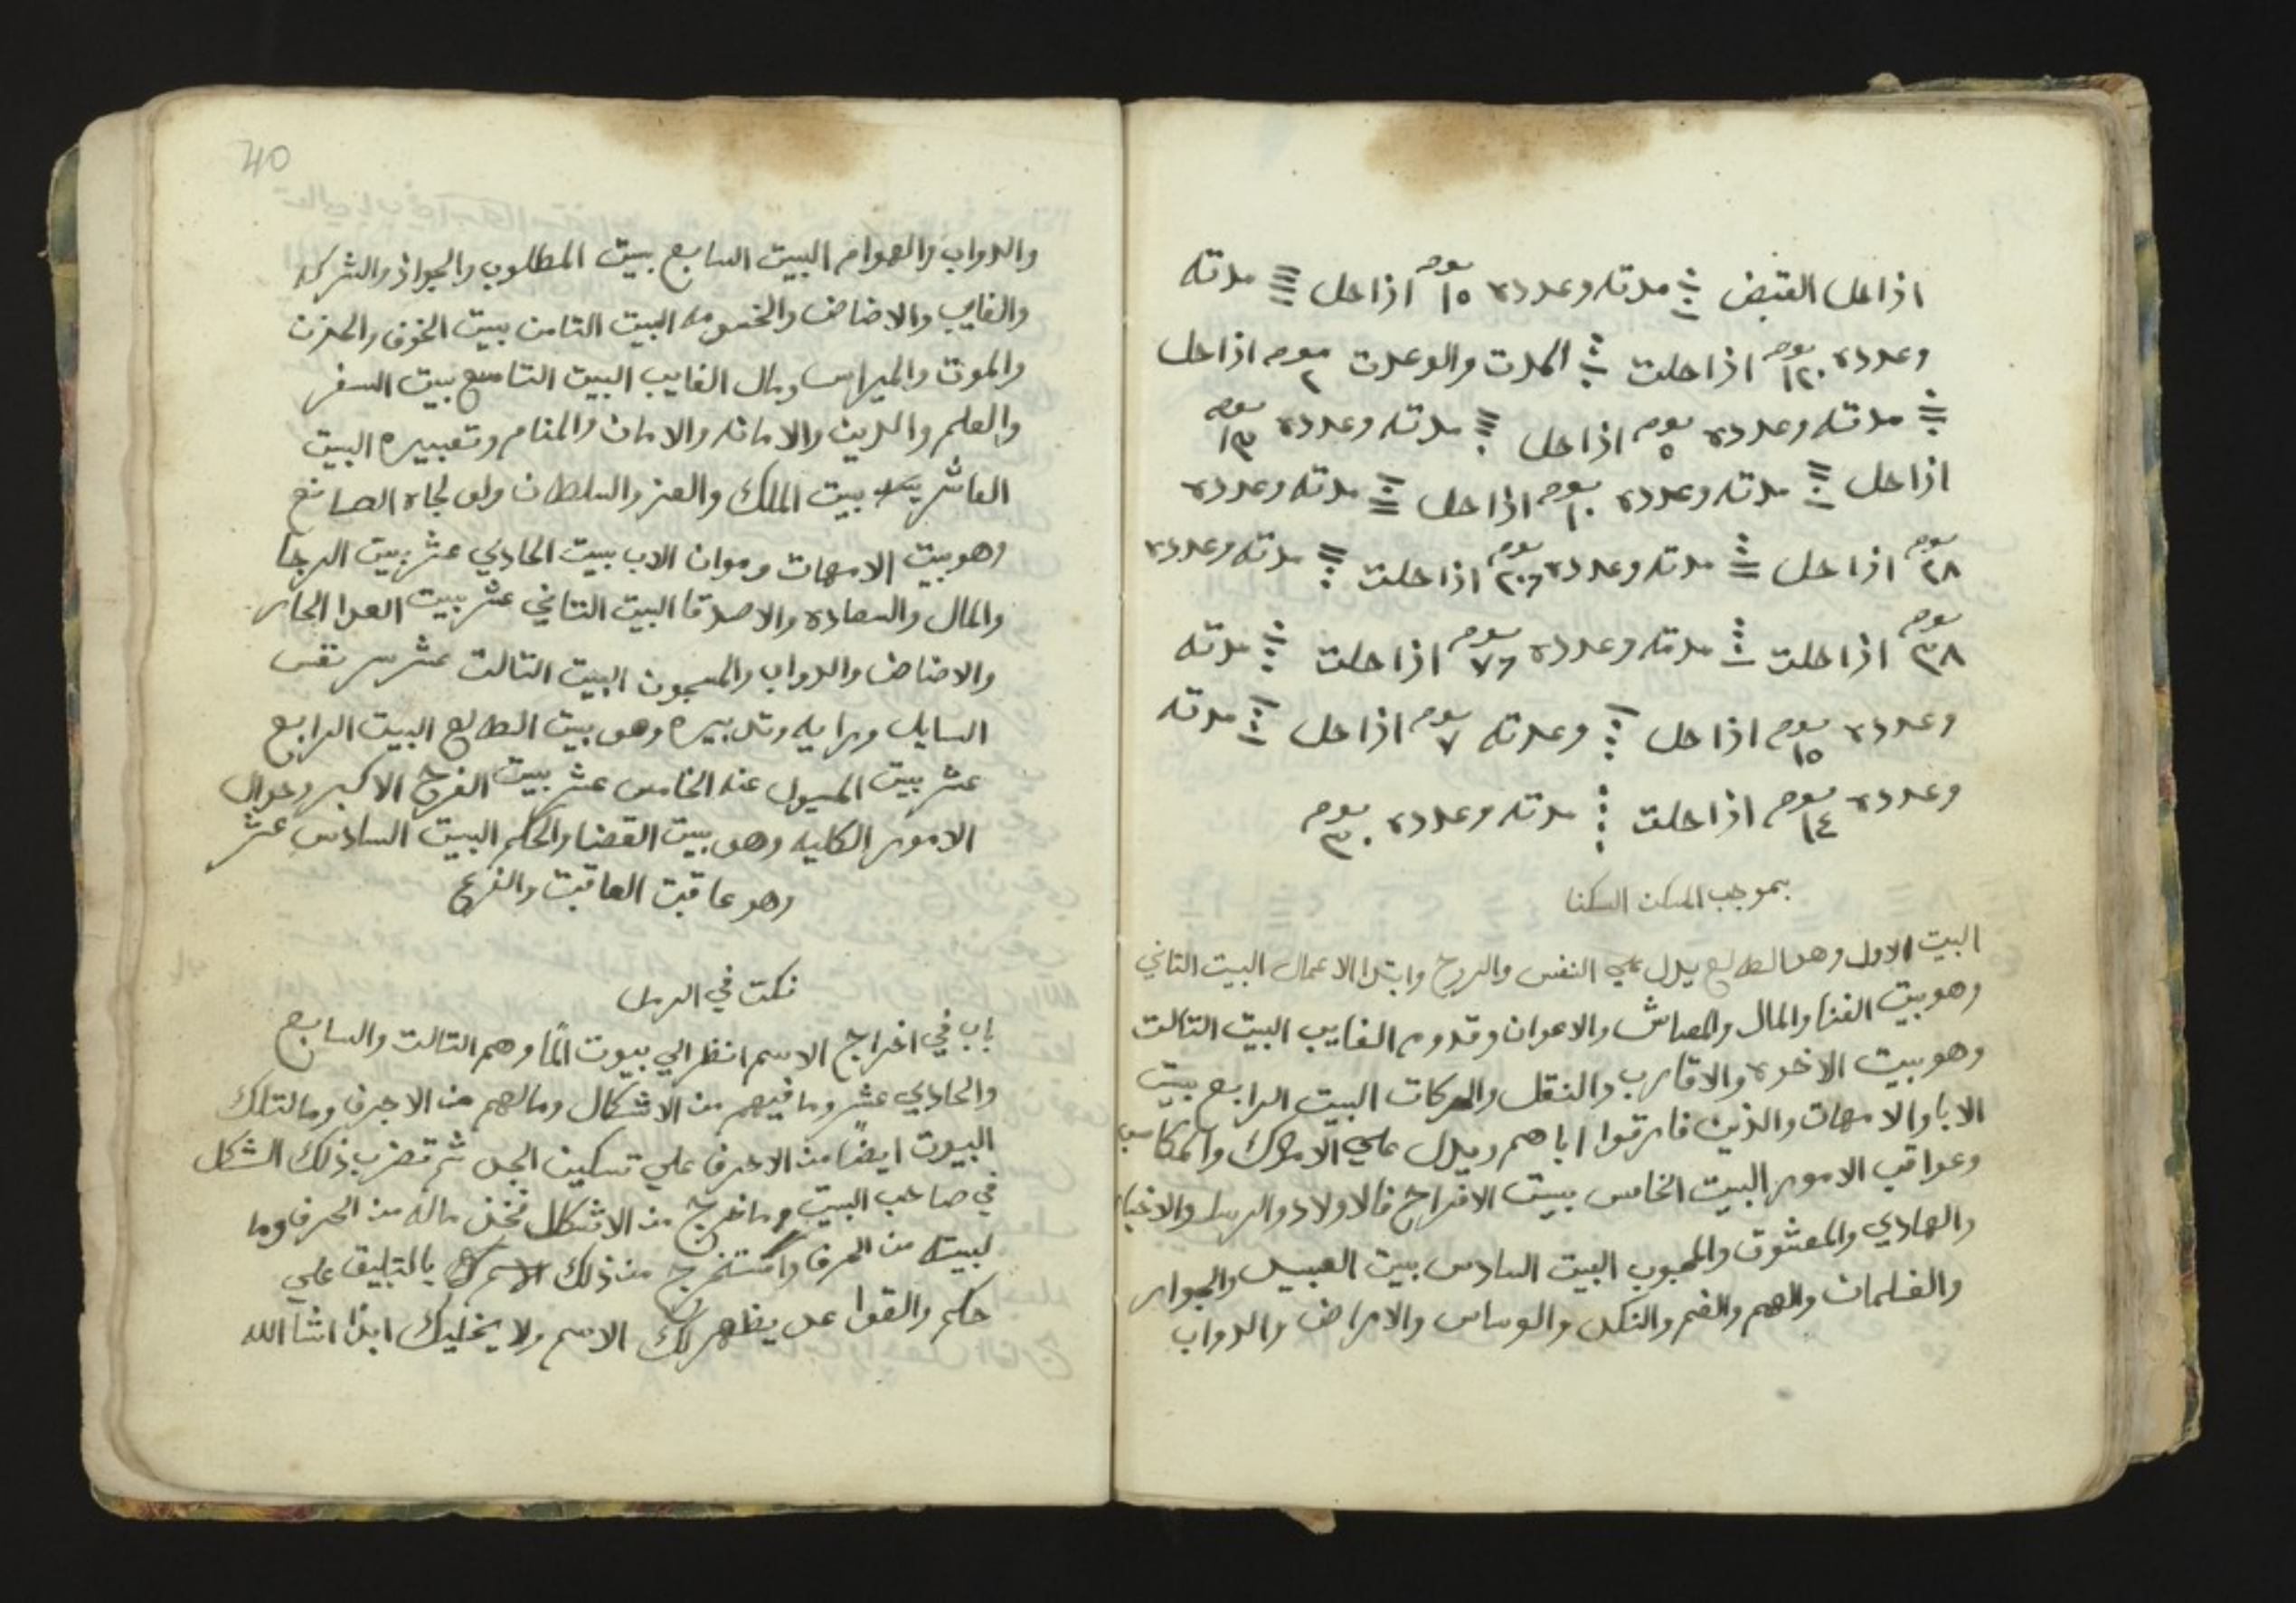 اذا حل القبض مدته وعدده ١٥ يوم اذا حل مدته
وعدده ١٢٠ يوم اذا حلت المدت والوعدت ٢ يوم اذا حل
مدته وعدده ٥ يوم اذا حل مدته وعدده ١٣ يوم
اذا حل مدته وعدده ١٠ يوم اذا حل مدته وعدده
٢٨ يوم اذا حل مدته وعدده يوم اذا حلت مدته وعدده
٣٨ يوم اذا حلت مدته وعدده يوم اذا حلت مدته
وعدده ١٥ يوم اذا حل وعدته ٧ يوم اذا حل مدته
وعدده ١٤ يوم اذا حلت مدته وعدده ٣٠ يوم
بموجب المسكن السكنا
البيت الاول وهو الطالع يدل علي النفس والروح وابتدا الاعمال البيت التاني
وهو بيت الغنا والمال والمعاش والاعوان وقدوم الغايب البيت التالت
وهو بيت الاخوه والاقارب والنقل والحركات البيت الرابع بيت
الابا والامهات والذين فارقوا اباهم ويدل علي الاملاك والمكاسب
وعواقب الامور البيت الخامس بيت الافراح فالاولاد والرسل والاخبار
والهادي والمعشوق والمحبوب البيت السادس بيت العبيد والجوار
والغلمان والهم والغم والنكد والوساس والامراض والدواب
40
والدواب والهوام البيت السابع بيت المطلوب والجواز والشركه
والغايب والاضاض والخسومه البيت التامن بيت الخوف والحزن
والموت والميراس ومال الغايب البيت التاسع بيت السفر
والعلم والدين والامانه والامان والمنام وتعبيره البيت
العاشر بيت الملك والعز والسلطان ولو لجاه الصانع
وهو بيت الامهات وموان الاب بيت الحادي عشر بيت الرجا
والمال والسعاده والاصدقا البيت التاني عشر بيت العدا الجار
والاضاض والدواب والمسجون البيت التالت عشر سر نفس
السايل ورايه وتدبيره وهو بيت الطالع البيت الرابع
عشر بيت المسيول عنه الخامس عشر بيت الفرح الاكبر وحوال
الامور الكليه وهو بيت القضا والحكم البيت السادس عشر
وهو عاقبت العاقبت والفرع
نكت في الرمل
باب في اخراج الاسم انظر الي بيوت الما وهم التالت والسابع
والحادي عشر وما فيهم من الاشكال ومالهم من الاحرف وما لتلك
البيوت ايضا من الاحرف علي تسكين الجدل ثم تضرب ذلك الشكل
في صاحب البيت وما خرج من الاشكال فخذ ماله من الحرف وما
لبيته من الحرف واستخرج من ذلك الاسم بالتبليق علي
حكم والقوا عد يظهر لك الاسم ولا يخليك ابدا انشا الله